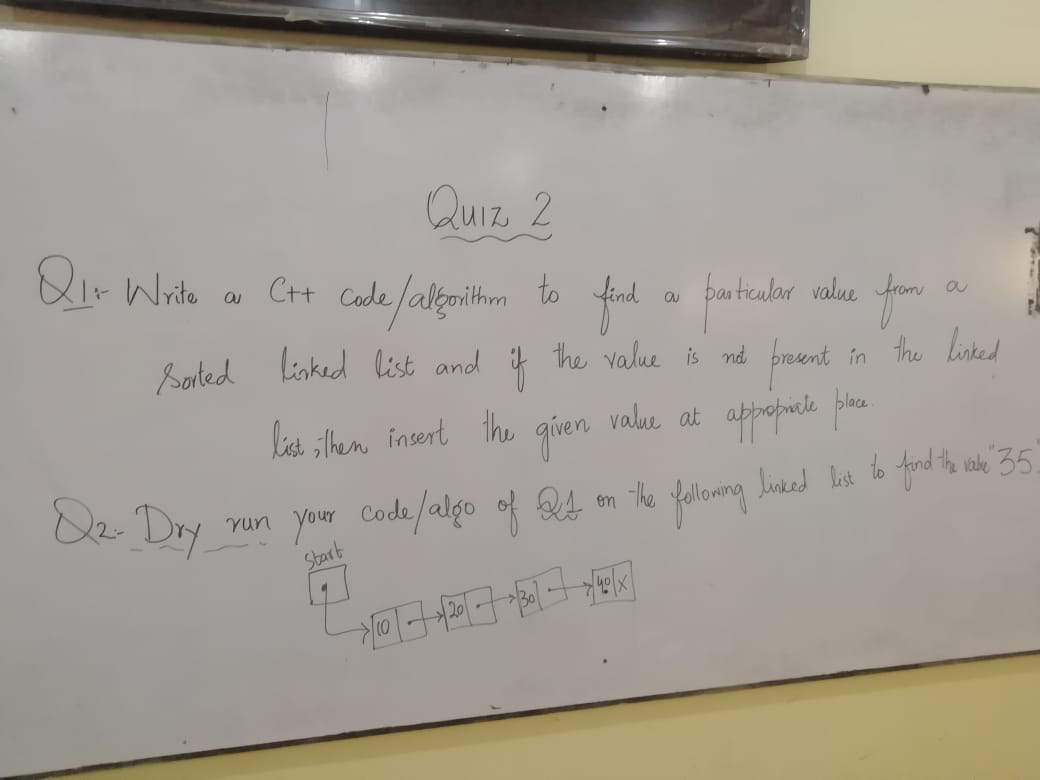 Quiz 2
Q1:- Write a C++ code/algorithm to find a particular value from a
sorted linked list and if the value is not present in the linked
list, then insert the given value at appropriate place.
Q2:- Dry run your code/algo of Q1 on the following linked list to find the value "35"
Start
10 20 30 40 X